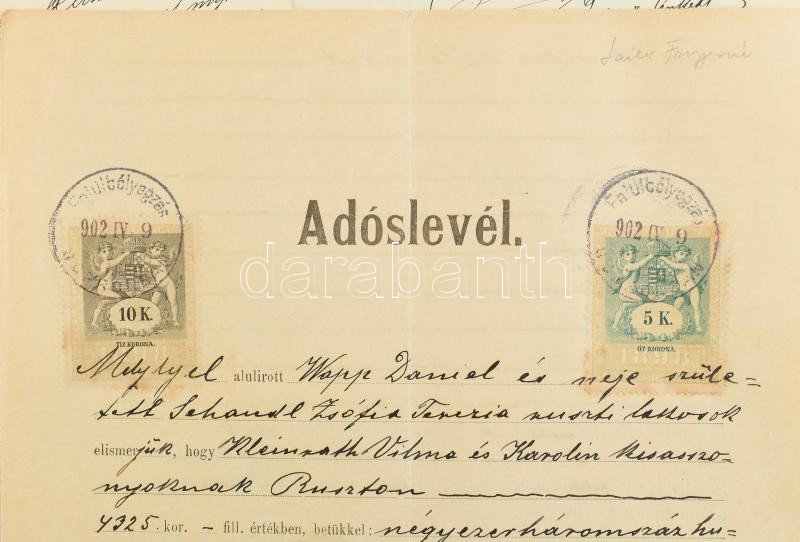 Adóslevél.
Felülbélyegzés
902 IV 9
Felülbélyegzés
902 IV 9
10 K.
TIZ KORONA.
5 K.
ÖT KORONA.
darabanth
Melylyel alulirott Wapp Daniel és neje szüle=
tett Schandl Zsófia Terezia ruszti lakosok
elismerjük, hogy Kleinrath Vilma és Karolin kisasszo-
nyoknak Ruszton
4325 kor. — fill. értékben, betükkel: négyezerháromszázhu=